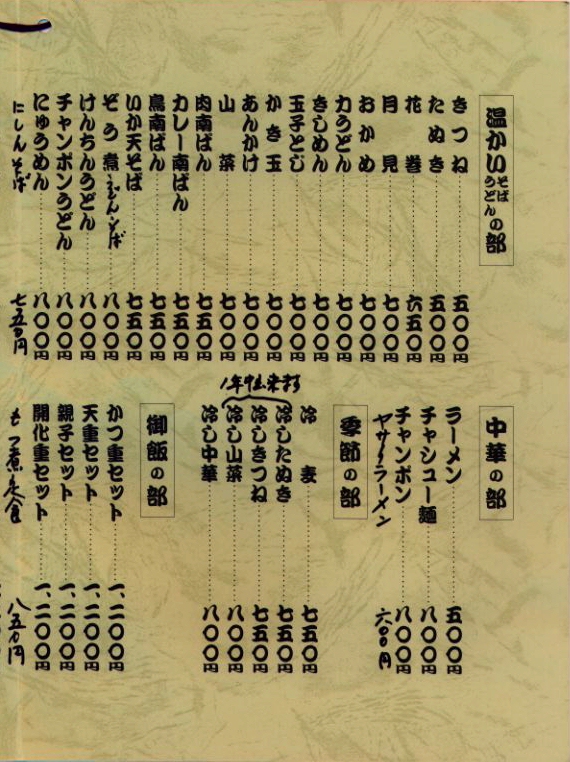 温かいそばうどんの部
きつね 五〇〇円
たぬき 五〇〇円
花巻 六五〇円
月見 七〇〇円
おかめ 七〇〇円
力うどん 七〇〇円
きしめん 七〇〇円
玉子とじ 七〇〇円
かき玉 七〇〇円
あんかけ 七〇〇円
山菜 七〇〇円
肉南ばん 七五〇円
カレー南ばん 七五〇円
鳥南ばん 七五〇円
いか天そば 七五〇円
ぞう煮うどん・そば 八〇〇円
けんちんうどん 八〇〇円
チャンポンうどん 八〇〇円
にゅうめん 八〇〇円
にしんそば 七五〇円
中華の部
ラーメン 五〇〇円
チャシュー麺 八〇〇円
チャンポン 八〇〇円
ヤサイラーメン 六〇〇円
季節の部
冷麦 七五〇円
冷したぬき 七五〇円
冷しきつね 七五〇円
冷し山菜 八〇〇円
冷し中華 八〇〇円
1年中出来ます
御飯の部
かつ重セット 一、二〇〇円
天重セット 一、二〇〇円
親子セット 一、二〇〇円
開化重セット 一、二〇〇円
もつ煮定食 八五〇円